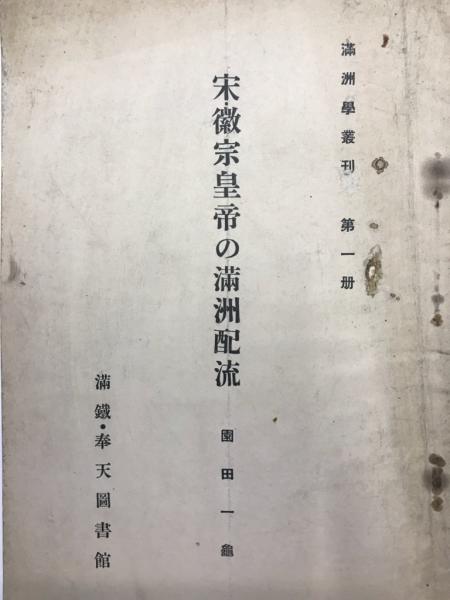 滿洲學叢刊 第一册
宋・徽宗皇帝の滿洲配流
園田一龜
滿鐵・奉天圖書館